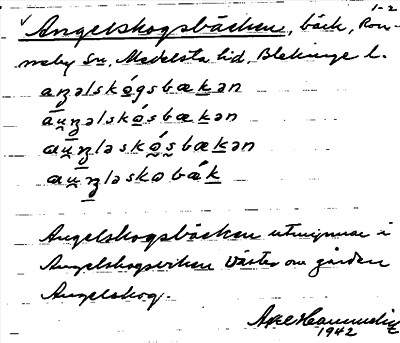 1-2
√ Angelskogsbäcken, bäck, Ron-
neby Sn, Medelsta hd, Blekinge l.
aŋəlskógsbækən
aŭŋəlskósbækən
aŭŋləskósbækən
aŭŋləskobæk
Angelskogsbäcken utmynnar i
Angelskogsviken väster om gården
Angelskog.
Axel
1942